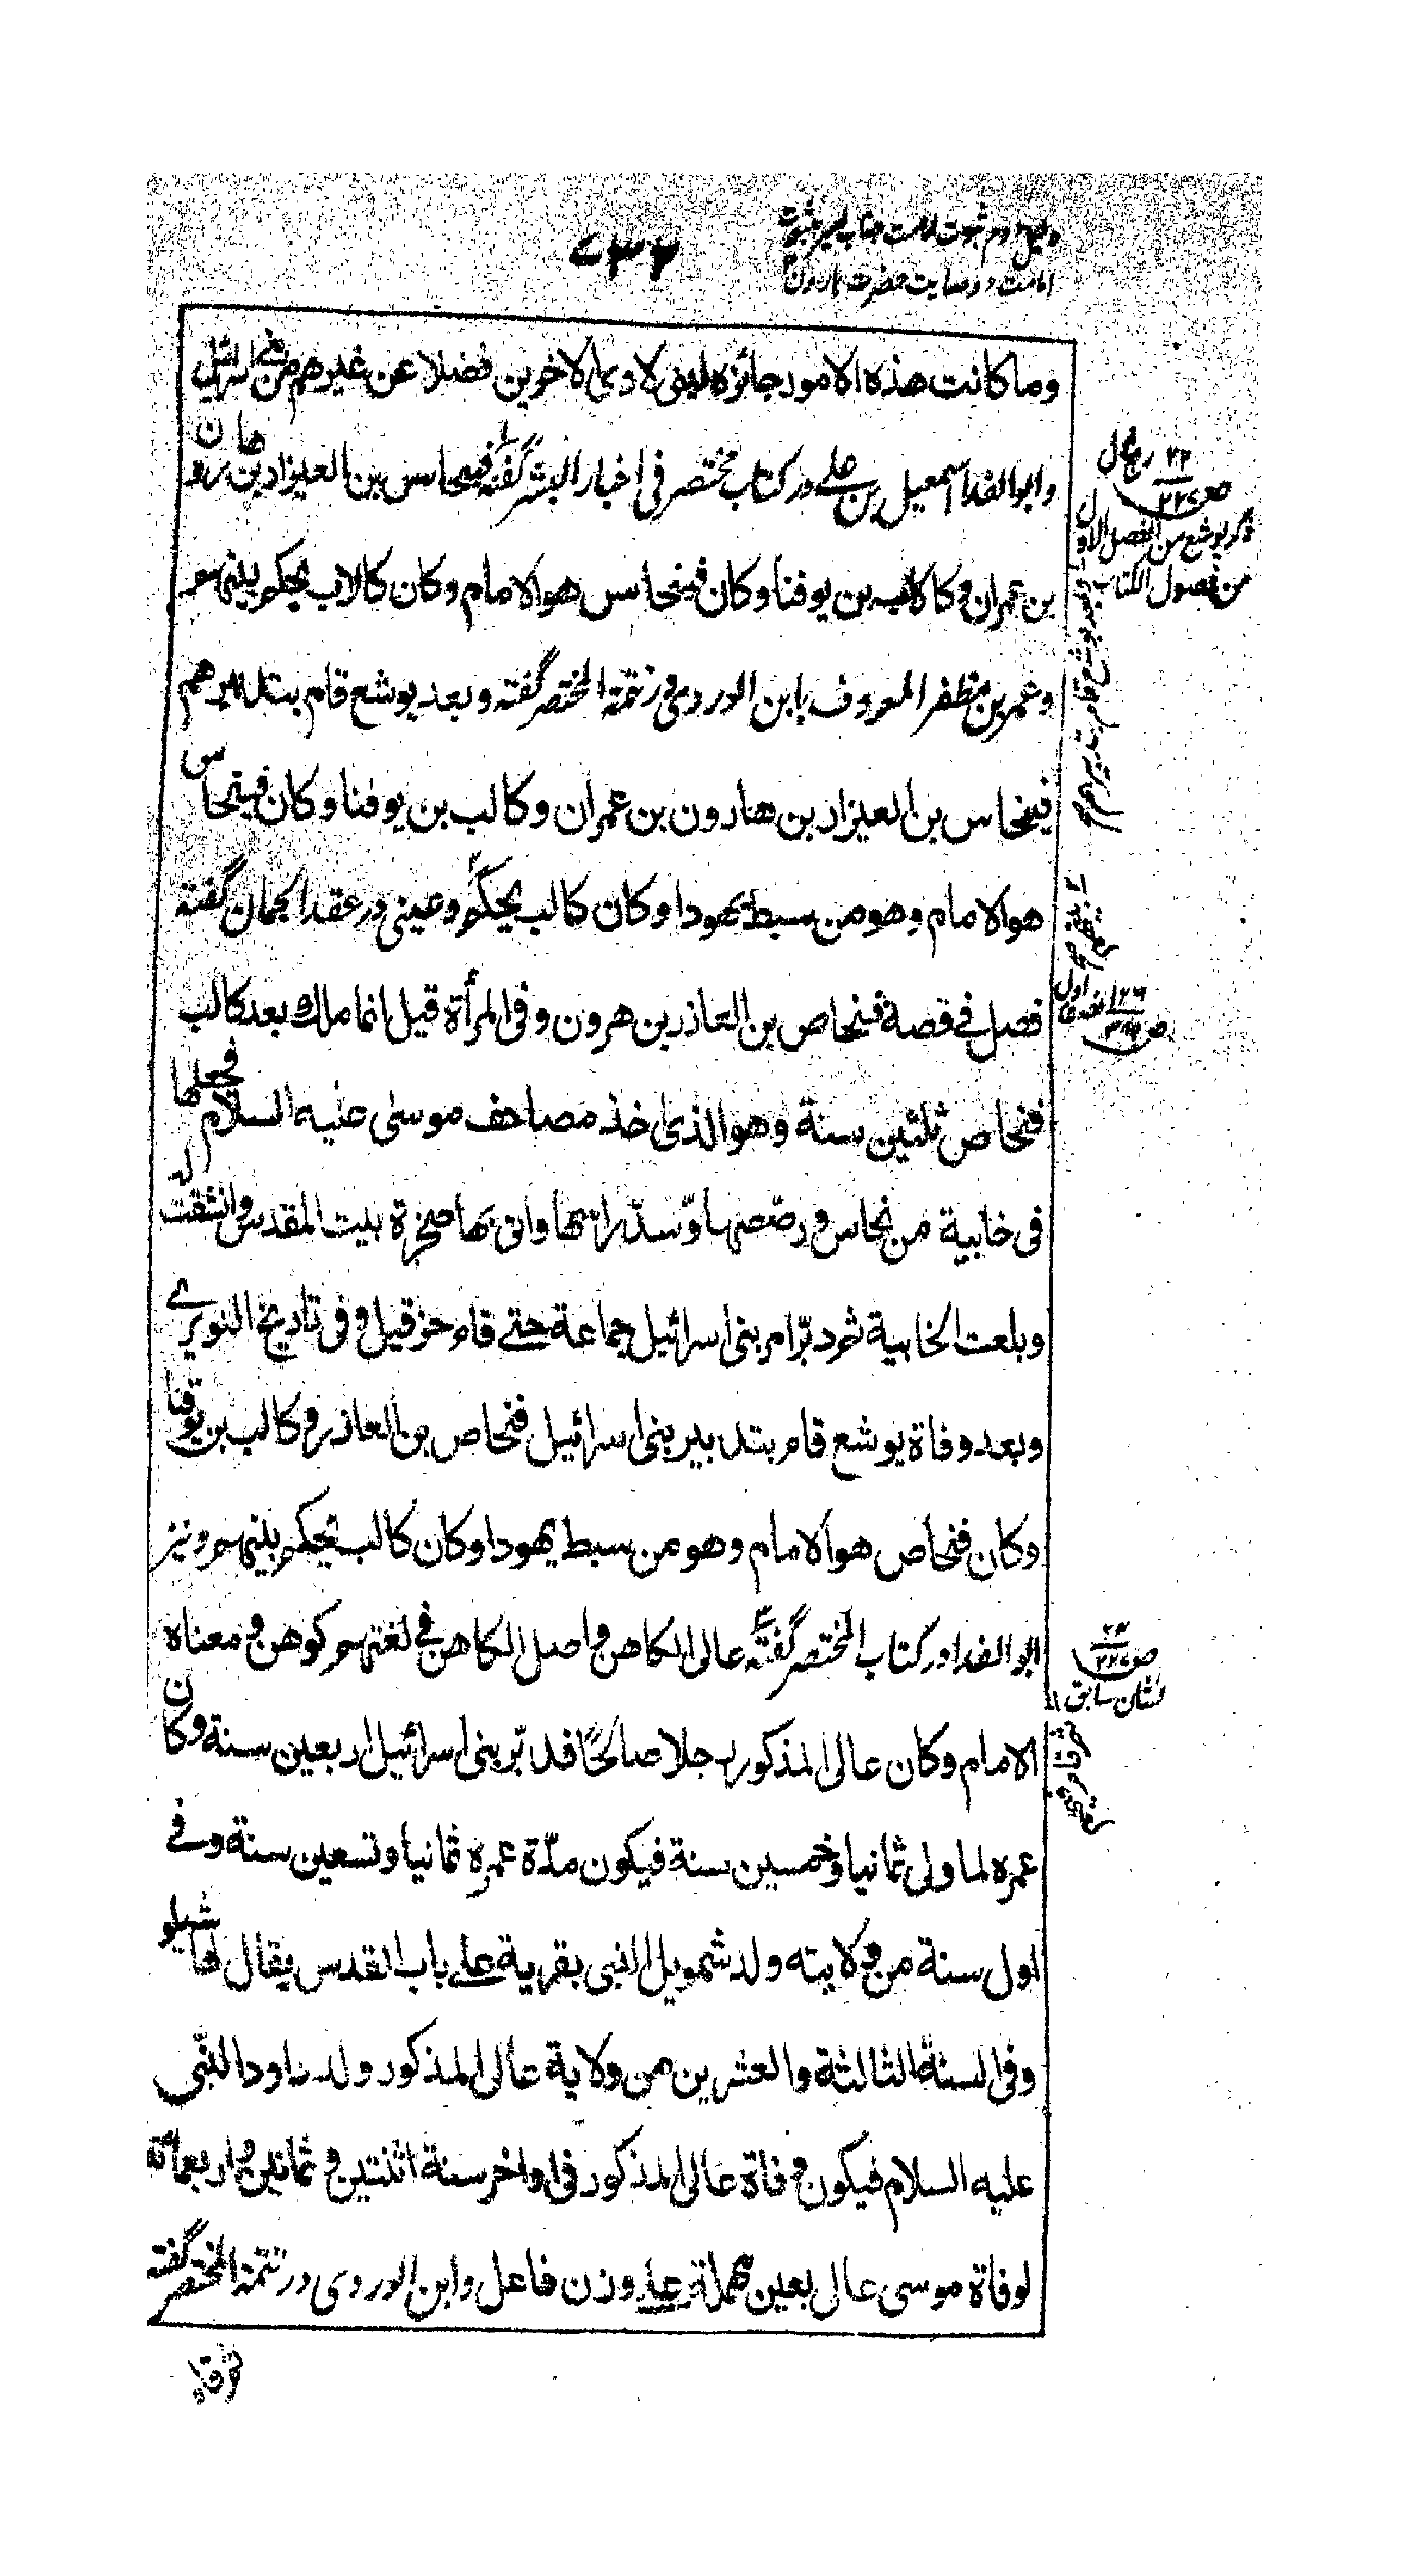 دلیل دوم ثبوت امامت جناب امیر بثبوت
امامت و وصایت حضرت هارون
وما كانت هذه الامور جائزة لبني لاوى الاخرين فضلا عن غيرهم من بني اسرائيل
وابو الفدا اسمعيل بن علے در كتاب مختصر فى اخبار البشر گفته فينحاس بن العيزار بن هارون
بن عمران وكالب بن يوفنا وكان فينحاس هو الامام وكان كالاب يحكم بينهم
وعمر بن مظفر المعروف بابن الوردى در تتمة المختصر گفته وبعد يوشع قام بتدبيرهم
فينحاس بن العيزار بن هارون بن عمران وكالب بن يوفنا وكان فينحاس
هو الامام وهو من سبط يهودا وكان كالب يحكم وعينى در عقد الجمان گفته
فصل فے قصة فنحاص بن العاذر بن هرون وفى المرأة قيل انما ملك بعد كالب
فنحاص ثلثين سنة وهو الذى اخذ مصاحف موسى عليه السلام فجعلها
فى خابية من نحاس ورصّصها وسدّ راسها واتى بها صخرة بيت المقدس وانشقت له
وبلعت الخابية ثم دبّر امر بنى اسرائيل جماعة حتے قام حزقيل وفى تاريخ النويرے
وبعد وفاة يوشع قام بتدبير بنى اسرائيل فنحاص بن العاذر وكالب بن يوقنا
وكان فنحاص هو الامام وهو من سبط يهودا وكان كالب يحكم بينهم ونيز
ابو الفدا در كتاب المختصر گفته عالى الكاهن واصل الكاهن فے لغتهم كوهن ومعناه
الامام وكان عالى المذكور رجلا صالحًا فدبّر بنى اسرائيل اربعين سنة وكان
عمره لما ولى ثمانيا وخمسين سنة فيكون مدّة عمره ثمانيا وتسعين سنة وفے
اول سنة من ولايته ولد شمويل النبى بقرية علے باب القدس يقال لها شيلو
وفى السنة الثالثة والعشرين من ولاية عالى المذكور ولد داود النبّى
عليه السلام فيكون وفاة عالى المذكور فى اواخر سنة اثنتين وثمانين واربعمأة
لوفاة موسى عالى بعين مهملة علے وزن فاعل وابن الوردى در تتمة المختصر گفته
ذكر يوشع من الفصل الاول
من فصول الكتاب
نشان سابق ١١